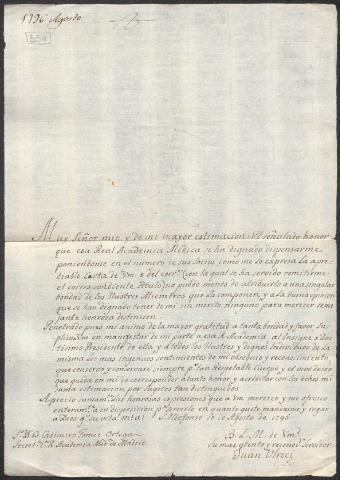 1796 Agosto
Muy Señor mio y de mi mayor estimacion: El señalado honor
que esa Real Academia Médica se ha dignado dispensarme,
poniendome en el numero de sus Socios como me lo expresa la apre-
ciable Carta de Vm. 8 del corr.te (con la qual se ha servido remitirme
el correspondiente Titulo) no puedo menos de atribuirlo a una singular
bondad de los Ilustres Miembros que la componen, y a la buena opinion
que se han dignado tener de mi sin merito ninguno para merecer seme-
jante honrosa distincion.
Penetrado pues mi animo de la mayor gratitud a tanta bondad y favor Su-
plico a Vm. en manifestar de mi parte a esa R. Academia al Insigne y Doc-
tissimo Presidente de ella y a todos los Ilustres y dignos Individuos de la
misma los mas ingenuos sentimientos de mi obsequio y reconocimiento,
que conservo y conservaré siempre p.r tan Respetable Cuerpo y el vivo deseo
que queda en mi de corresponder a tanto honor y acreditar con los echos mi
justa estimacion por Sugetos tan distinguidos.
Aprecio sumam.te las honrosas expresiones que a Vm. merezco y me ofrezco
enteram.te a su disposicion p.a servirle en quanto guste mandarme y rogar
a Dios gu. su vida m.s a.s S. Ildefonso 10 de Agosto de 1796
B. L. M. de Vm.
Su mas atento y reconocido Servidor
Juan
S.r D.n Casimiro Gomez Ortega
Secret.o de la R. Academia Med.ca de Madrid